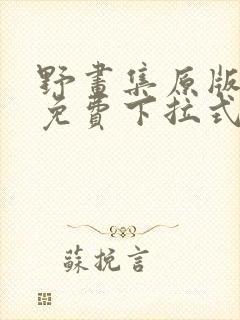 野畫集原版
免費下拉式
蘇挽言